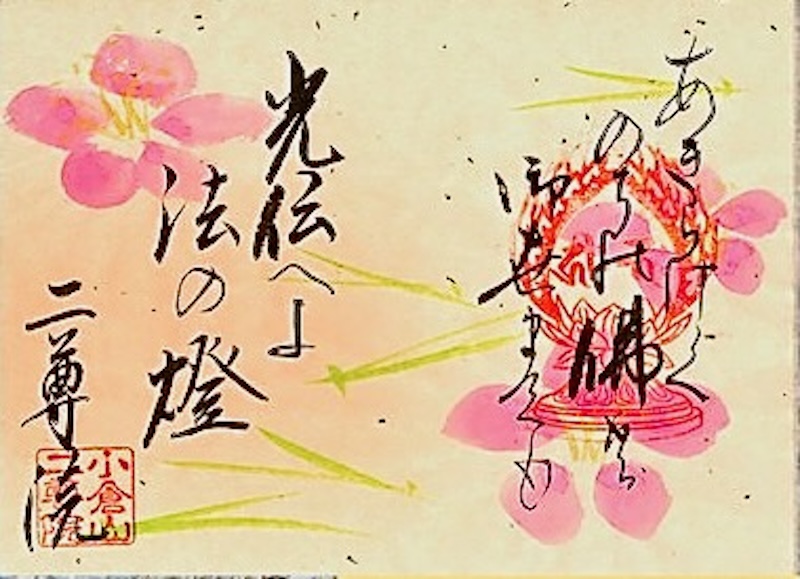 あきらけく
のちの佛の
御世までも
光伝へよ
法の燈
二尊院
小倉山
二尊院